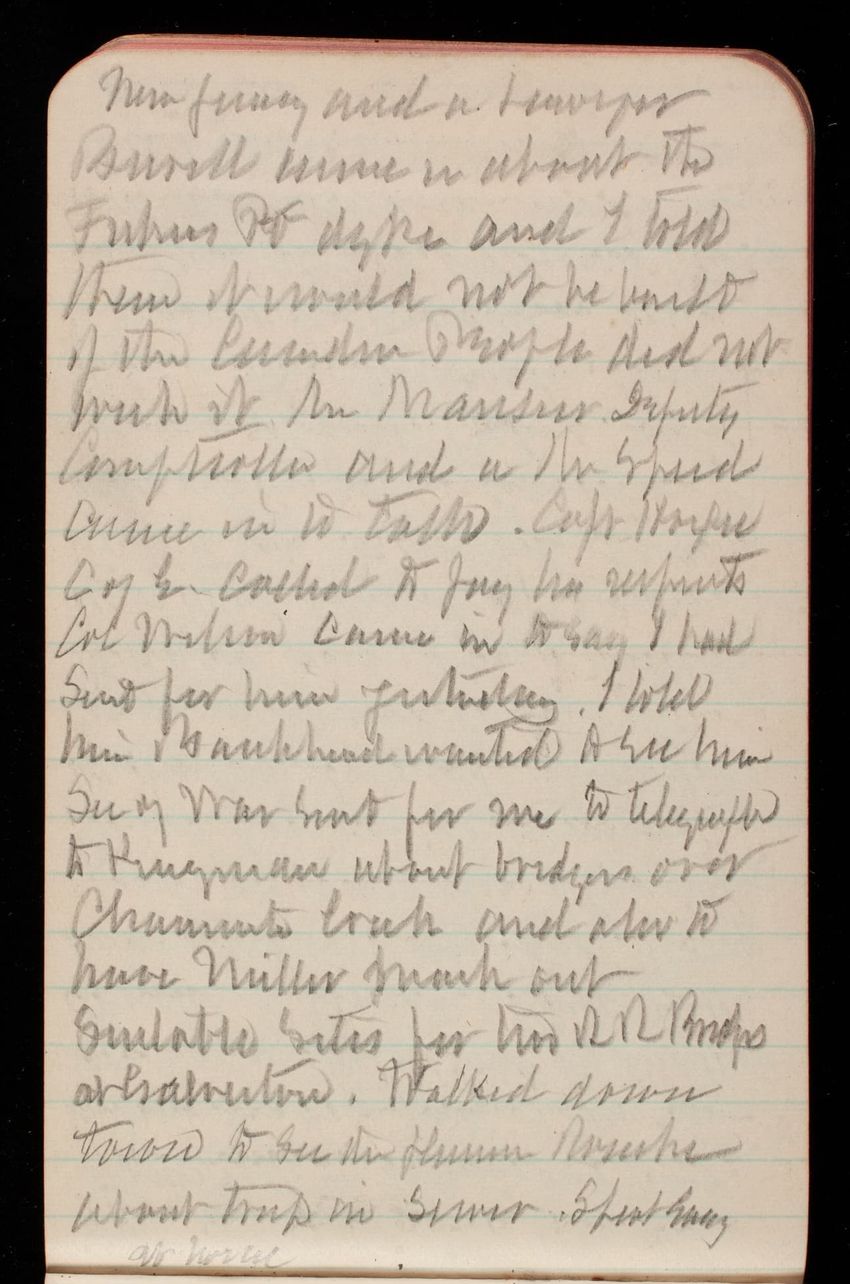 New Jersey and a lawyer
Burrell came in about the
Pt dyke and I told
them it would not be built
if the Camden People did not
wish it. Mr Mansur Deputy
Comptroller and a Mr Speed
came in to talk. Capt
Coy E. Called to pay his respects
Col Wilson Came in to say I had
Sent for him yesterday. I told
him Bankhead wanted to see him
Sec of War Sent for me to telegraph
to Kingman about bridges over
Creek and also to
have Miller mark out
Suitable Sites for two R R Bridges
at Galveston. Walked down
town to See the plumer
about trap in Sewer. Spent Evng
at home